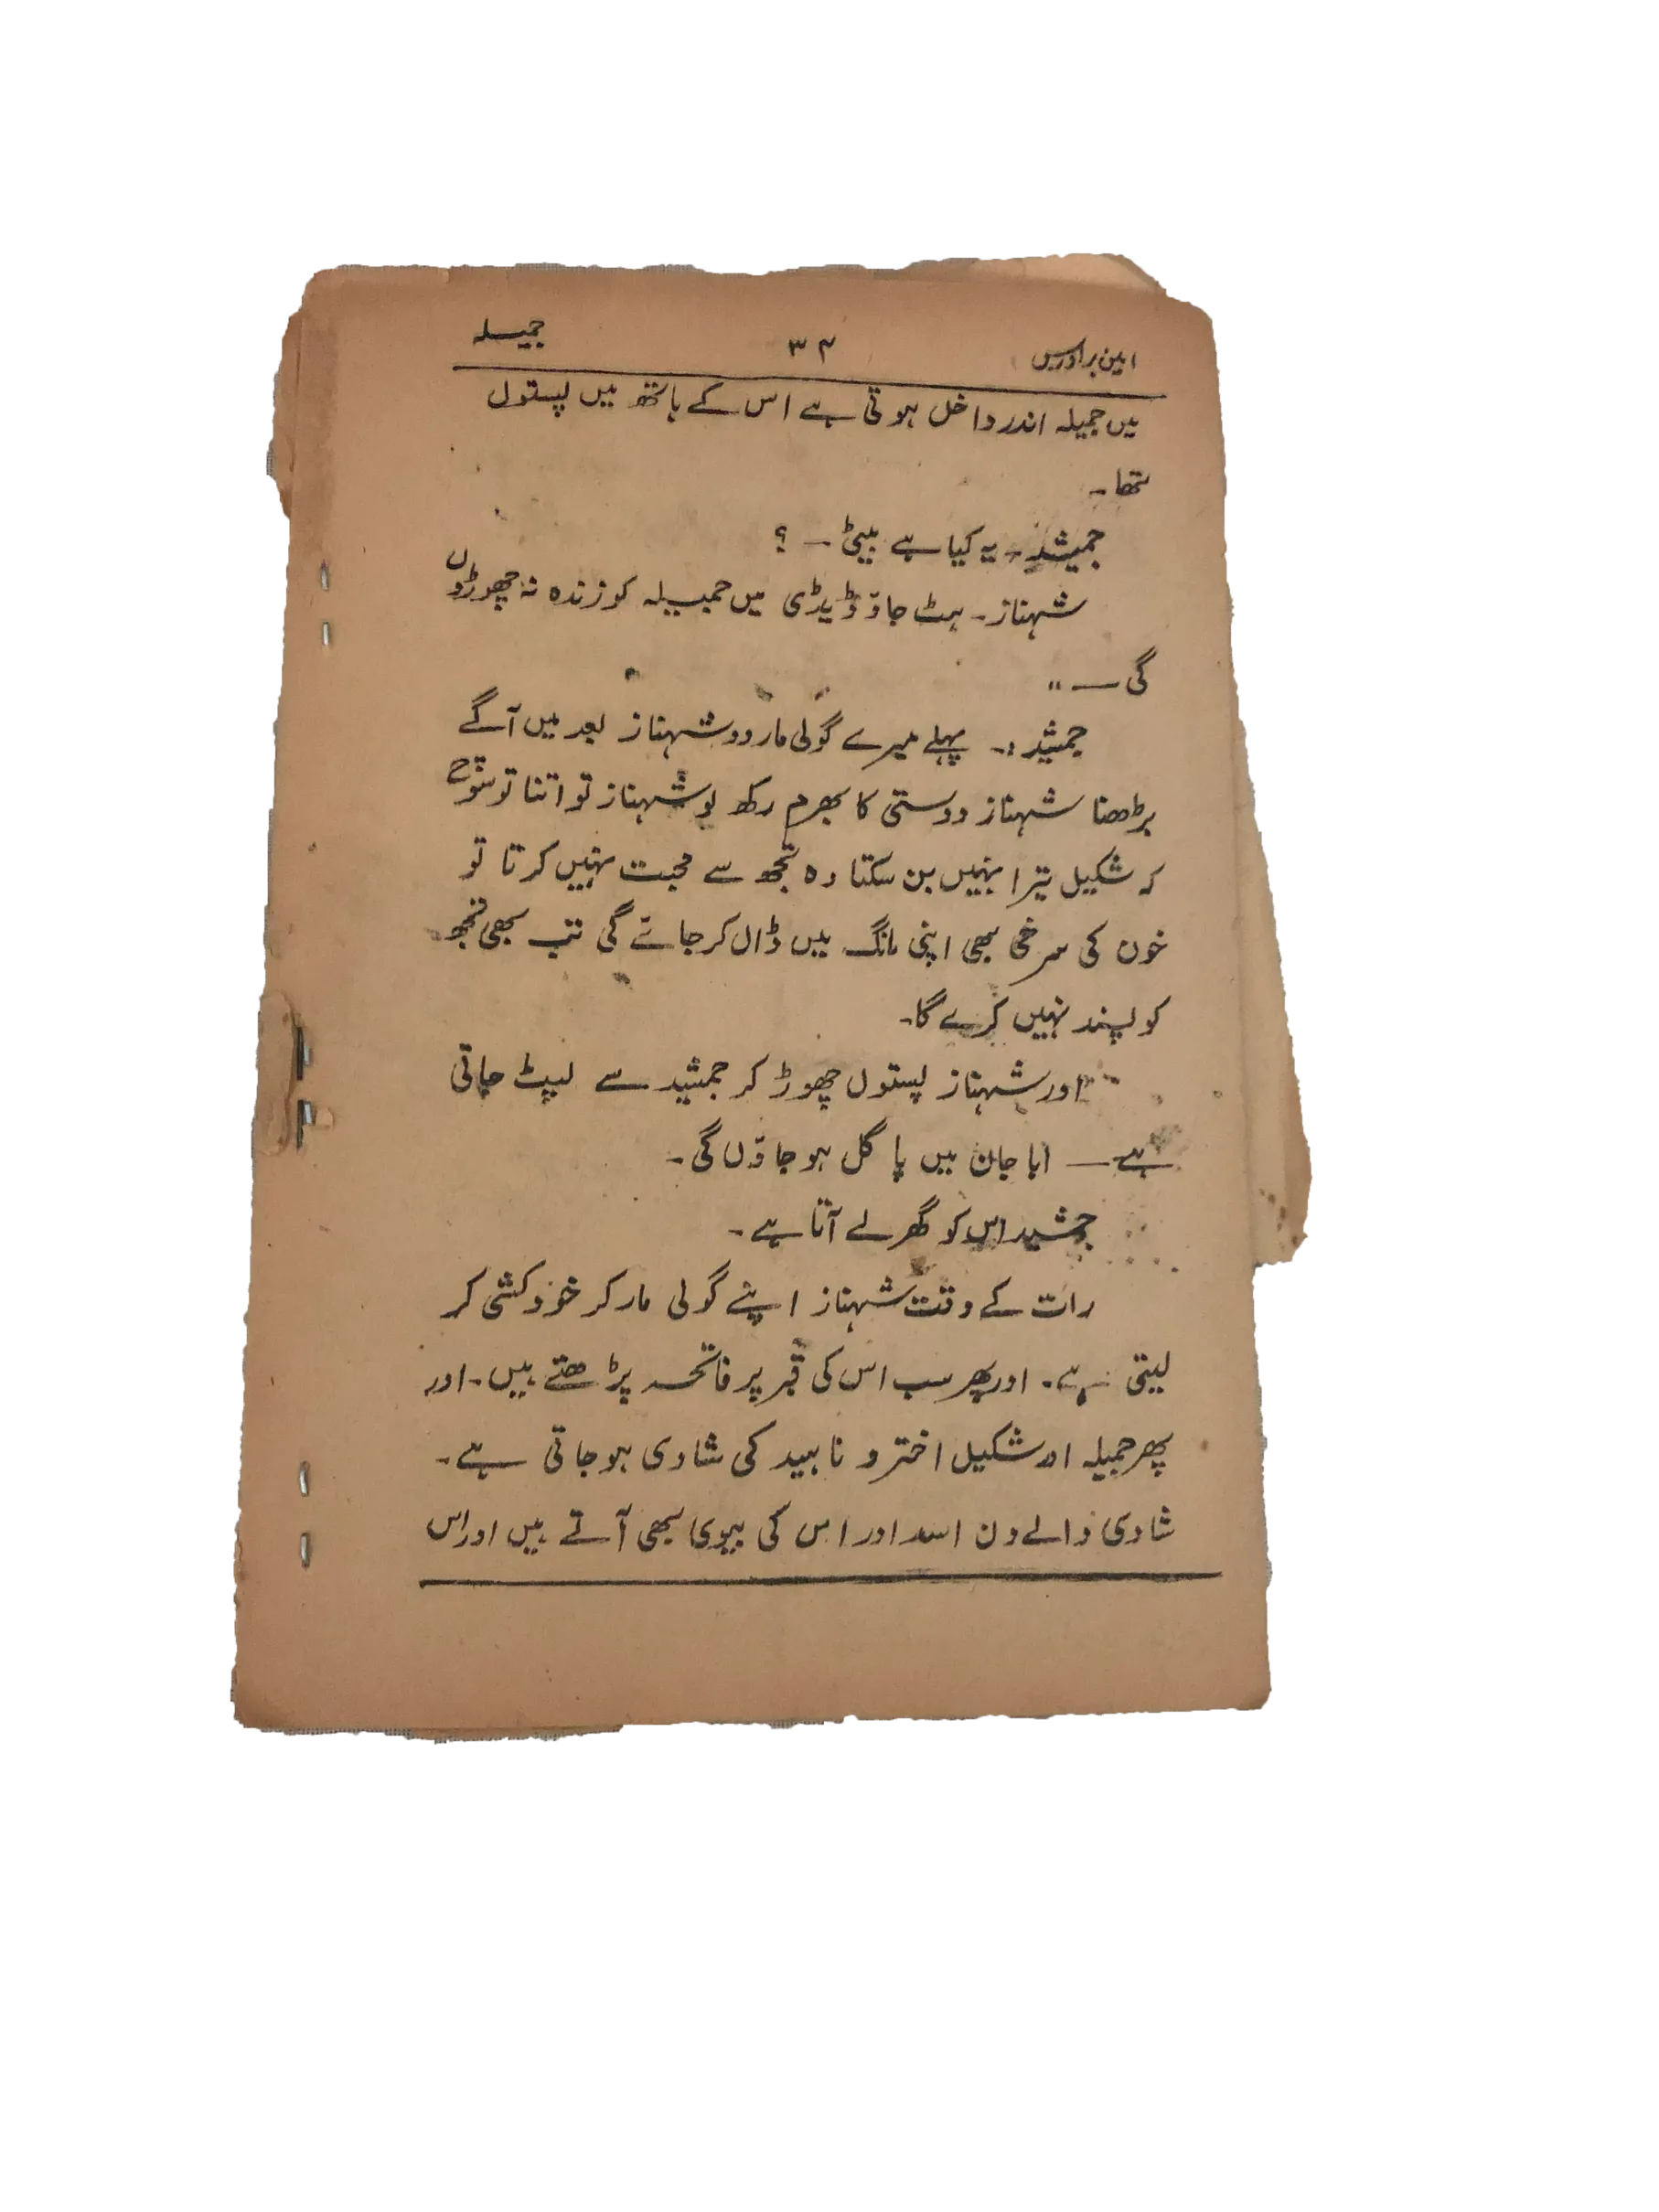 امین برادرس ۳۲ جمیلہ
میں جمیلہ اندر داخل ہوتی ہے اس کے ہاتھ میں پستول
تھا۔
جمیشد۔ یہ کیا ہے بیٹی ۔ ؟
شہناز۔ ہٹ جاؤ ڈیڈی میں جمیلہ کو زندہ نہ چھوڑوں
گی ـــ "
جمشید :۔ پہلے میرے گولی مار دو شہناز بعد میں آگے
بڑھنا شہناز دوستی کا بھرم رکھ لو شہناز تو اتنا تو سوچ
کہ شکیل تیرا نہیں بن سکتا وہ تجھ سے محبت نہیں کرتا تو
خون کی سرخی بھی اپنی مانگ میں ڈال کر جائے گی تب بھی تجھ
کو پسند نہیں کرے گا۔
اور شہناز پستول چھوڑ کر جمشید سے لپٹ جاتی
ہے ـــ ابا جان میں پاگل ہو جاؤں گی۔
جمشید اس کو گھر لے آتا ہے۔
رات کے وقت شہناز اپنے گولی مار کر خودکشی کر
لیتی ہے۔ اور پھر سب اس کی قبر پر فاتحہ پڑھتے ہیں۔ اور
پھر جمیلہ اور شکیل اختر و ناہید کی شادی ہو جاتی ہے۔
شادی والے دن اسد اور اس کی بیوی بھی آتے ہیں اور اس